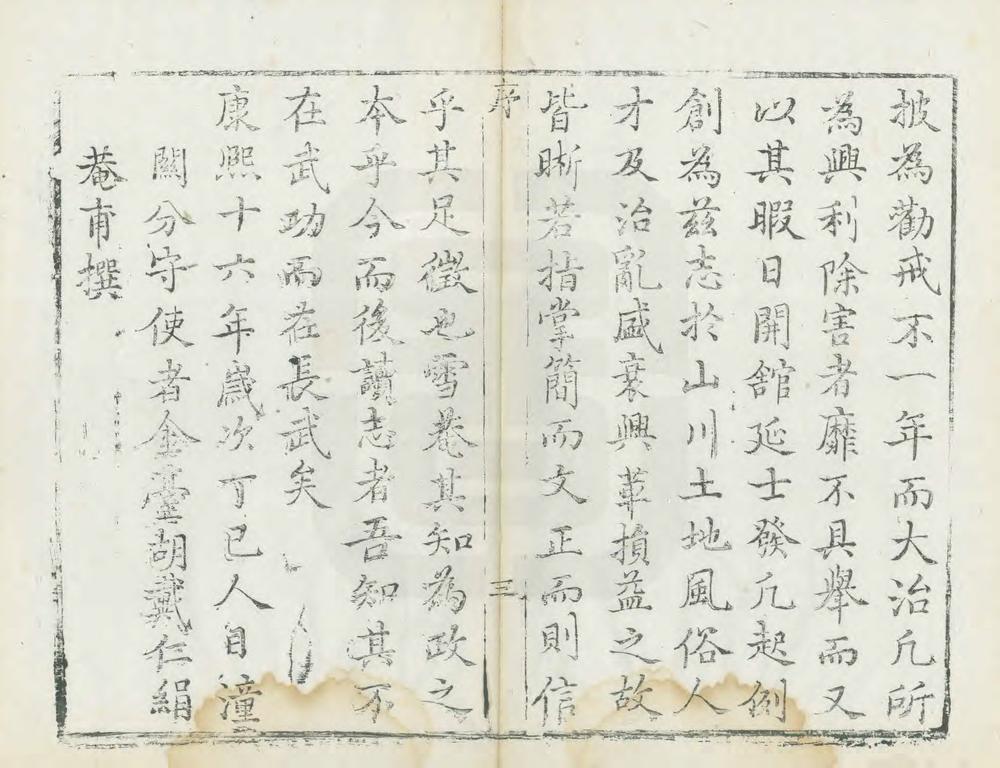 披為勸戒不一年而大治凢所
為興利除害者靡不具舉而又
以其暇日開舘延士發凢起例
創為兹志於山川土地風俗人
才及治亂盛衰興革損益之故
皆晰若指掌簡而文正而則信
序
三
乎其足徵也雪菴其知為政之
本乎今而後讀志者吾知其不
在武功而在長武矣
康熙十六年歲次丁巳人日潼
關分守使者金臺胡戴仁絹
菴甫撰